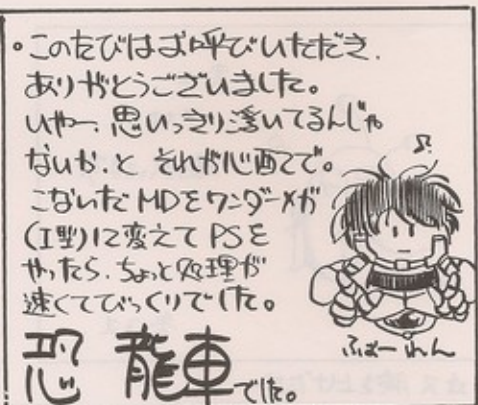 。このたびはお呼びいただき、
ありがとうございました。
いやー、思いっきり浮いてるんじゃ
ないか、と それが心配で。
こないだMDをワンダーメガ
(I型)に変えてPSを
やったら、ちょっと処理が
速くてびっくりでした。
恐 龍車でした。
ふぉーれん